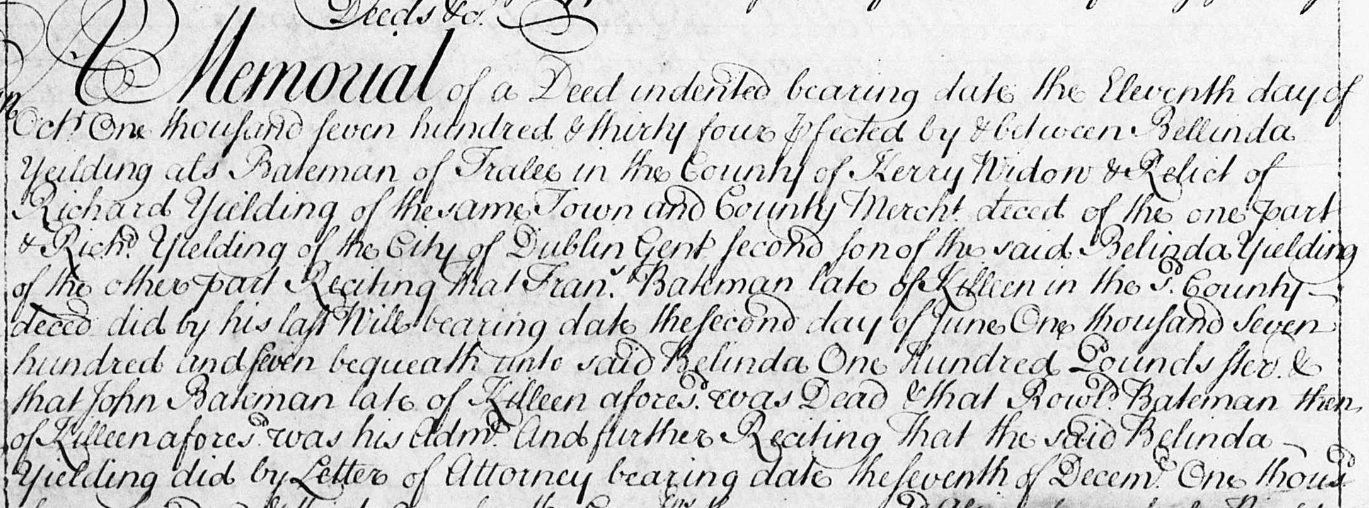 Deeds &c.
A Memorial of a Deed indented bearing date the Eleventh day of
Octr. One thousand seven hundred & thirty four pfected by & between Bellinda
Yeilding als Bateman of Tralee in the County of Kerry Widow & Relict of
Richard Yielding of the same Town and County Mercht. deced of the one part
& Richd. Yielding of the City of Dublin Gent second son of the said Belinda Yielding
of the other part Reciting that Frans. Bateman late of Killeen in the sd. County
deced did by his last Will bearing date the second day of June One thousand Seven
hundred and seven bequeath unto said Belinda One Hundred Pounds ster. &
that John Bateman late of Killeen aforesd. was Dead & that Rowld. Bateman then
of Killeen aforesd. was his Admr. And further Reciting That the said Belinda
Yielding did by Letter of Attorney bearing date the seventh of Decemr. One thousd